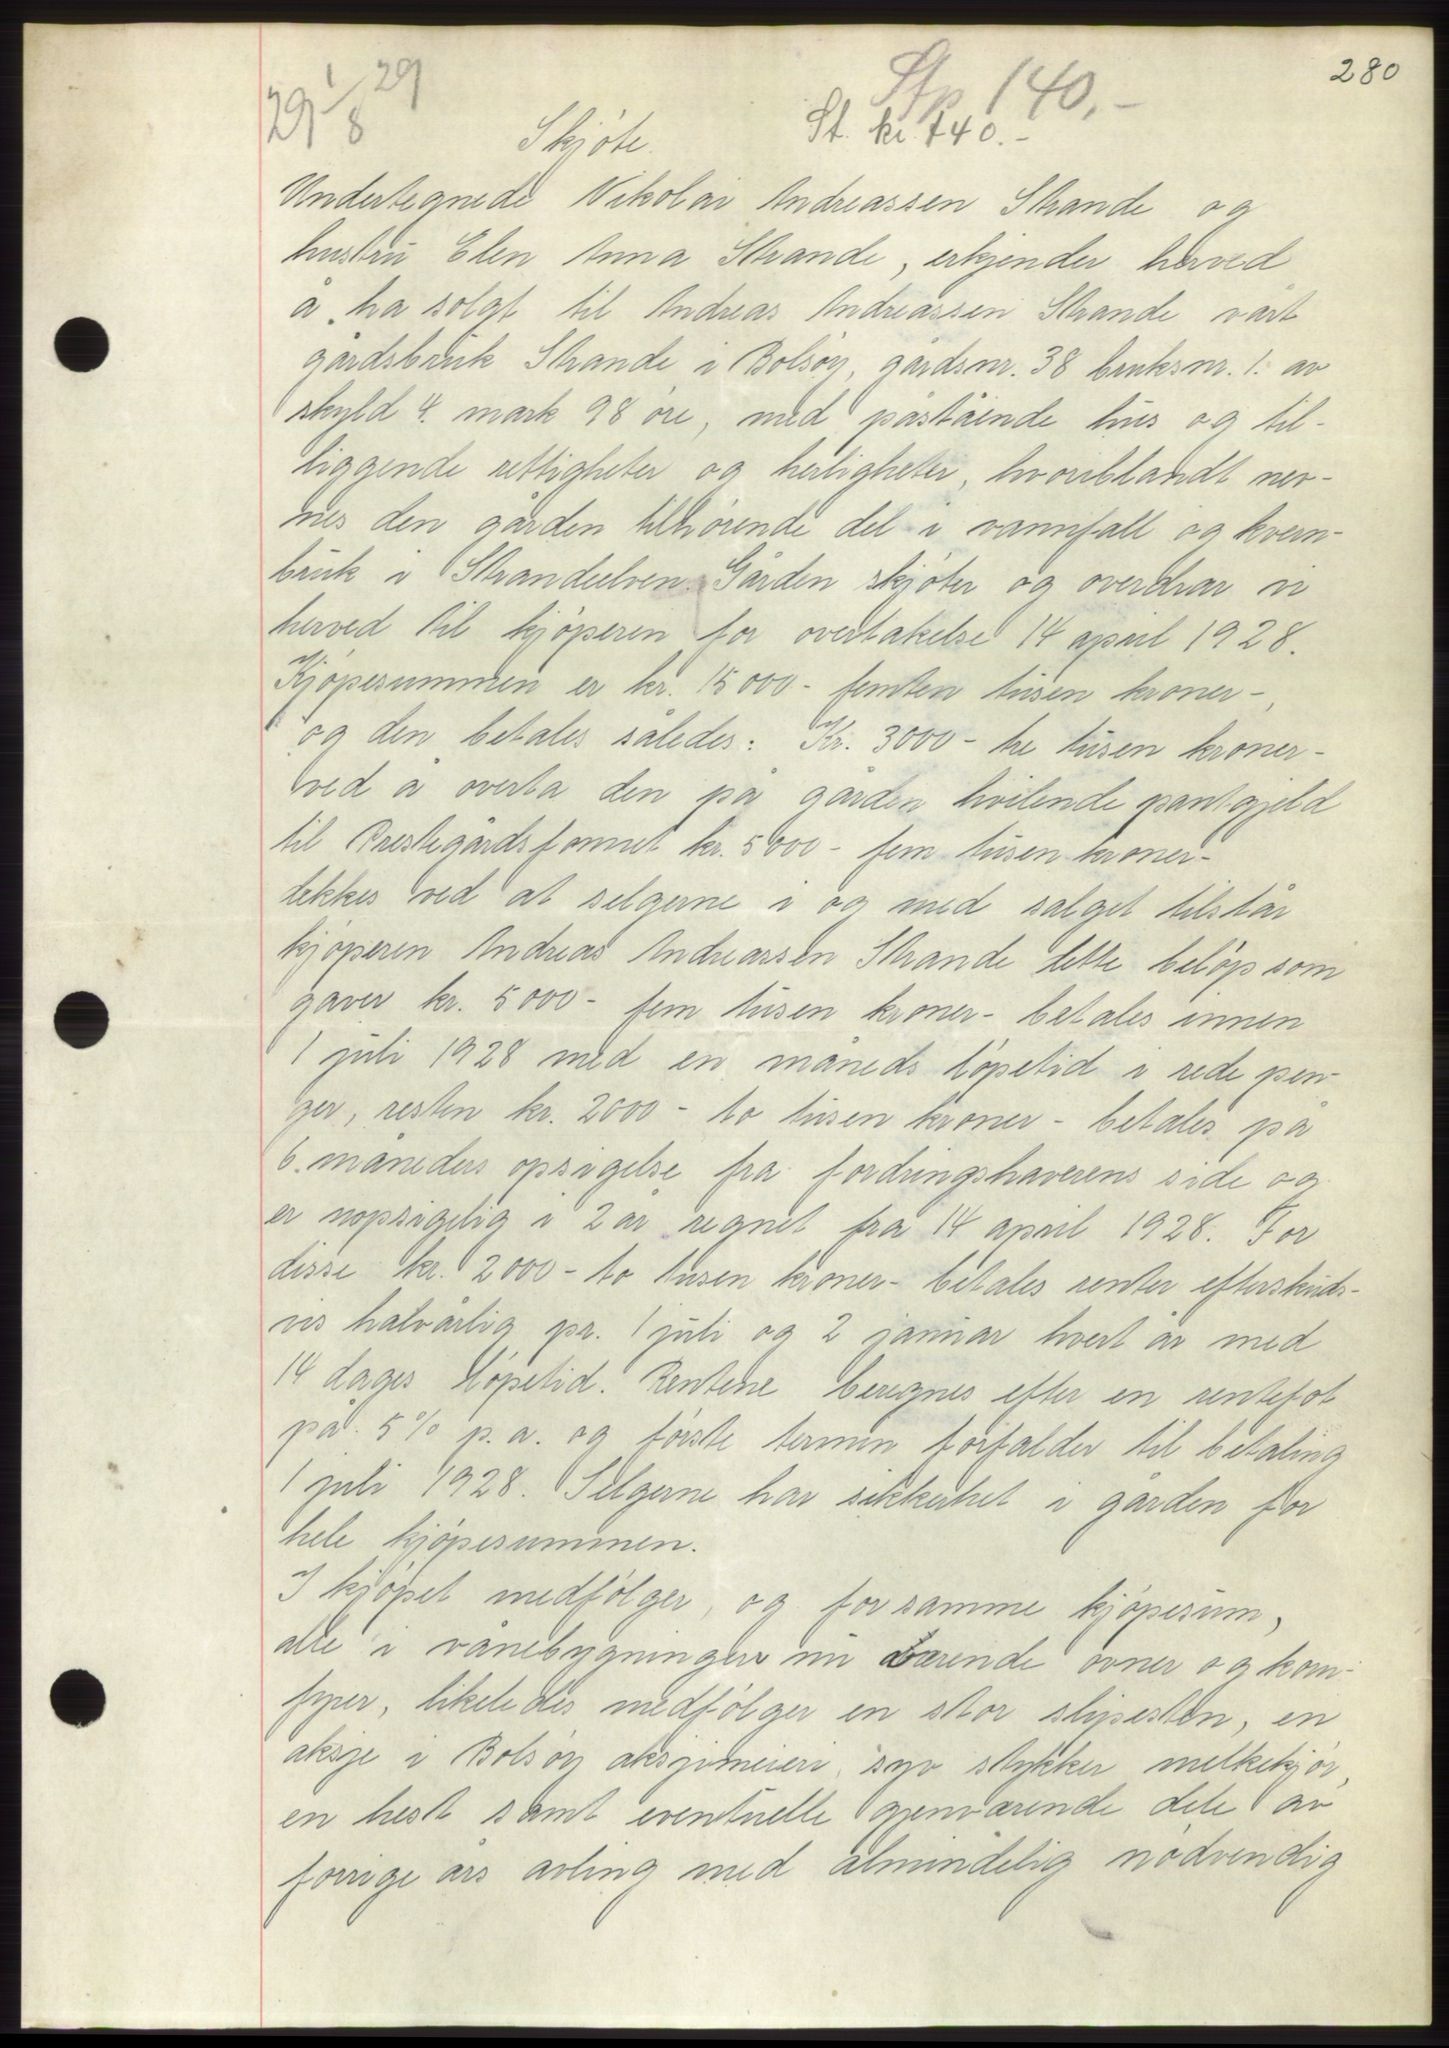 280
29 1/8 29
Stp 140,-
Skjøte. St. kr. 140.-
Undertegnede Nikolai Andreassen Strande og
hustru Elen Anna Strande, erkjender herved
å ha solgt til Andreas Andreassen Strande vårt
gårdsbruk Strande i Bolsøy, gårdsnr. 38 bruksnr. 1. av
skyld 4. mark 98 øre, med påstående hus og til-
liggende rettigheter og herligheter, hvoriblandt nev-
nes den gården tilhørende del i vannfall og kvern-
bruk i Strandeelven. Gården skjøter og overdrar vi
herved til kjøperen for overtakelse 14 april 1928.
Kjøpesummen er kr. 15000- femten tusen kroner-,
og den betales således: Kr. 3000- tre tusen kroner-
ved å overta den på gården hvilende pantgjeld
til Prestegårdsfonnet kr. 5000- fem tusen kroner-
dekkes ved at selgerne i og med salget tilstår
kjøperen Andreas Andreassen Strande dette beløp som
gaver kr. 5000- fem tusen kroner- betales innen
1 juli 1928 med en måneds løpetid i rede pen-
ger, resten kr. 2000- to tusen kroner- betales på
6. måneders opsigelse fra fordringshaverens side og
er uopsigelig i 2 år regnet fra 14 april 1928. For
disse kr. 2000- to tusen kroner- betales renter efterskuds-
vis halvårlig pr. 1 juli og 2 januar hvert år med
14 dages løpetid. Rentene beregnes efter en rentefot
på 5% p.a. og første termin forfalder til betaling
1 juli 1928. Selgerne har sikkerhet i gården for
hele kjøpesummen.
I kjøpet medfølger, og for samme kjøpesum,
alle i vånebygningen nu værende ovner og kom-
fyrer, likeledes medfølger en stor slipesten, en
aksje i Bolsøy aksjemeieri, syv stykker melkekjør,
en hest samt eventuelle gjenværende dele av
forrige års avling med almindelig nødvendig